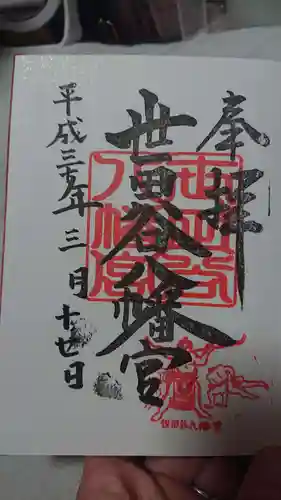 奉拝
世田谷八幡宮
平成三十年三月十七日
世田谷八幡宮